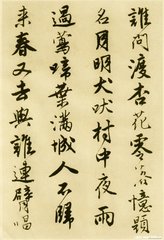 誰問渡杏花零落憶顛
名月明犬吠村中夜雨
過鶯啼葉滿城人不歸
来春又去與誰連臂唱